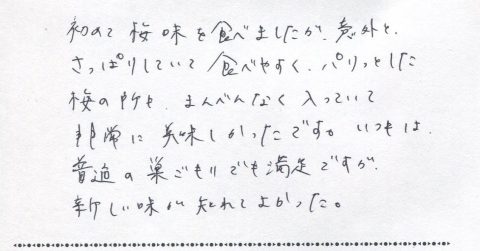 初めて梅味を食べましたが、意外と、
さっぱりしていて食べやすく、パリッとした
梅の所も、まんべんなく入っていて
非常に美味しかったです。いつもは、
普通の巣ごもりでも満足ですが、
新しい味が知れてよかった。